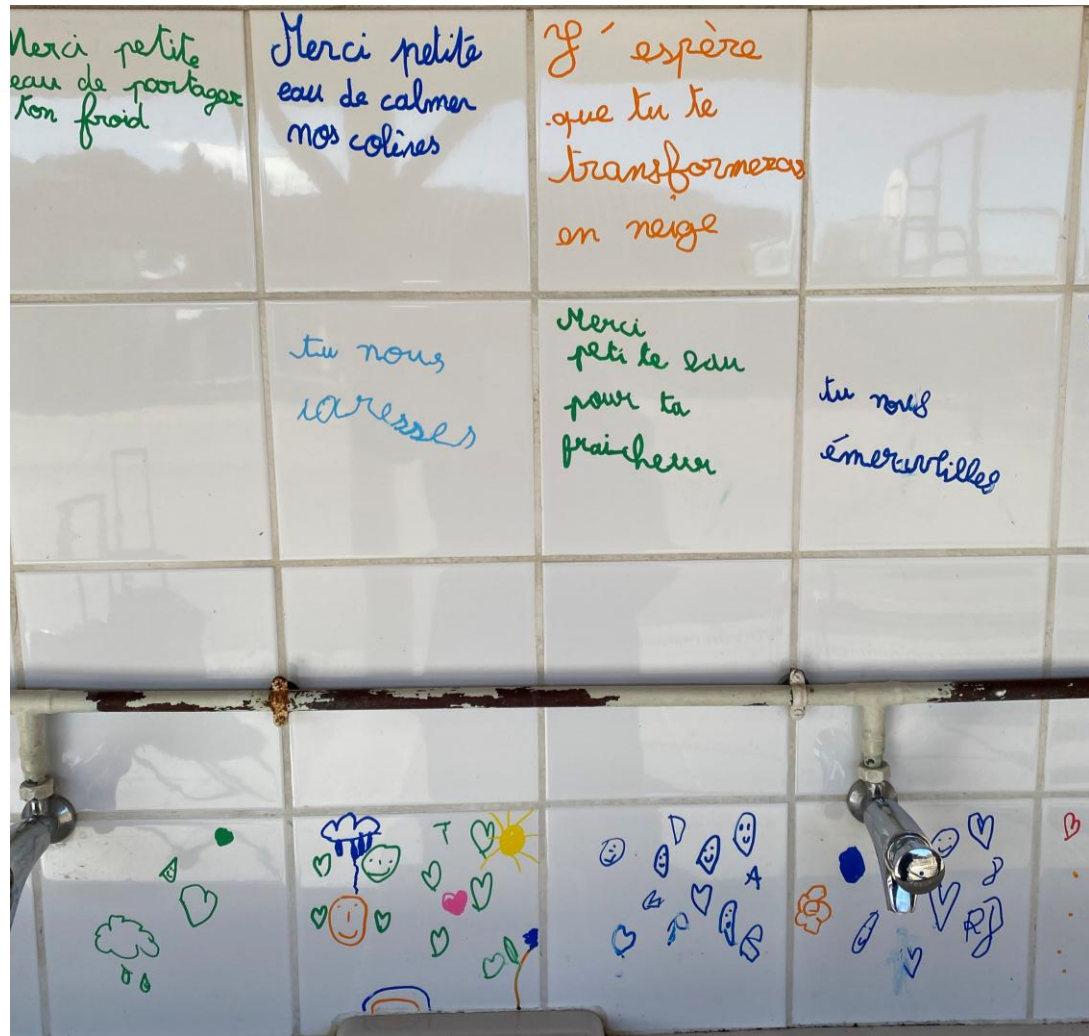 Merci petite
eau de partager
ton froid
Merci petite
eau de calmer
nos colères
J'espère
que tu te
transformeras
en neige
tu nous
caresses
Merci
petite eau
pour ta
fraicheur
tu nous
émerveilles
T
D
A
B
8
RJ